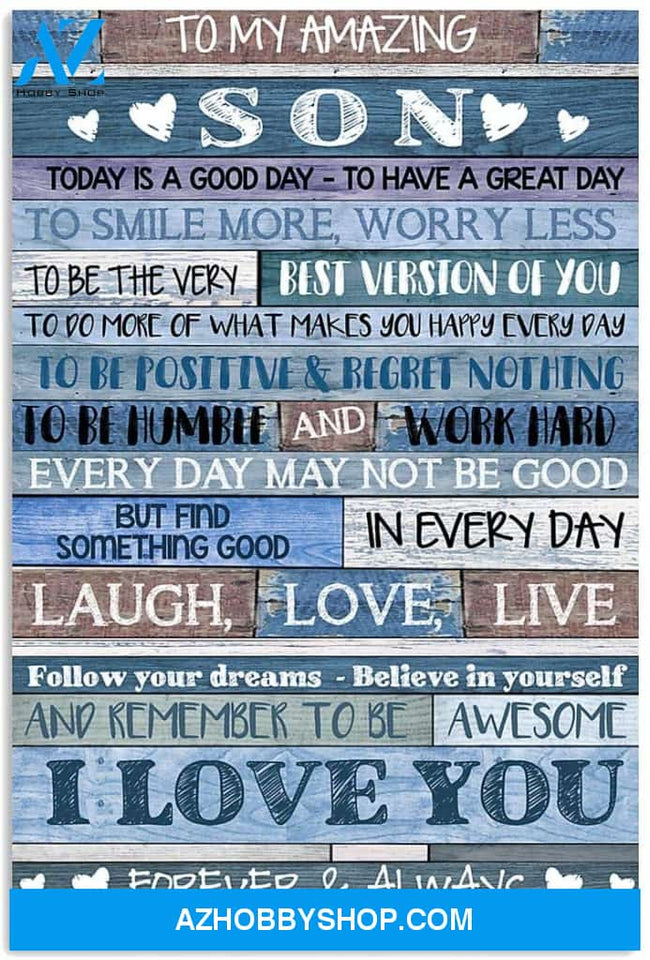 TO MY AMAZING
AZ
HOBBY SHOP
SON
TODAY IS A GOOD DAY - TO HAVE A GREAT DAY
TO SMILE MORE, WORRY LESS
TO BE THE VERY BEST VERSION OF YOU
TO DO MORE OF WHAT MAKES YOU HAPPY EVERY DAY
TO BE POSITIVE & REGRET NOTHING
TO BE HUMBLE AND WORK HARD
EVERY DAY MAY NOT BE GOOD
BUT FIND
SOMETHING GOOD
IN EVERY DAY
LAUGH, LOVE, LIVE
Follow your dreams - Believe in yourself
AND REMEMBER TO BE AWESOME
I LOVE YOU
FOREVER & ALWAYS
AZHOBBYSHOP.COM